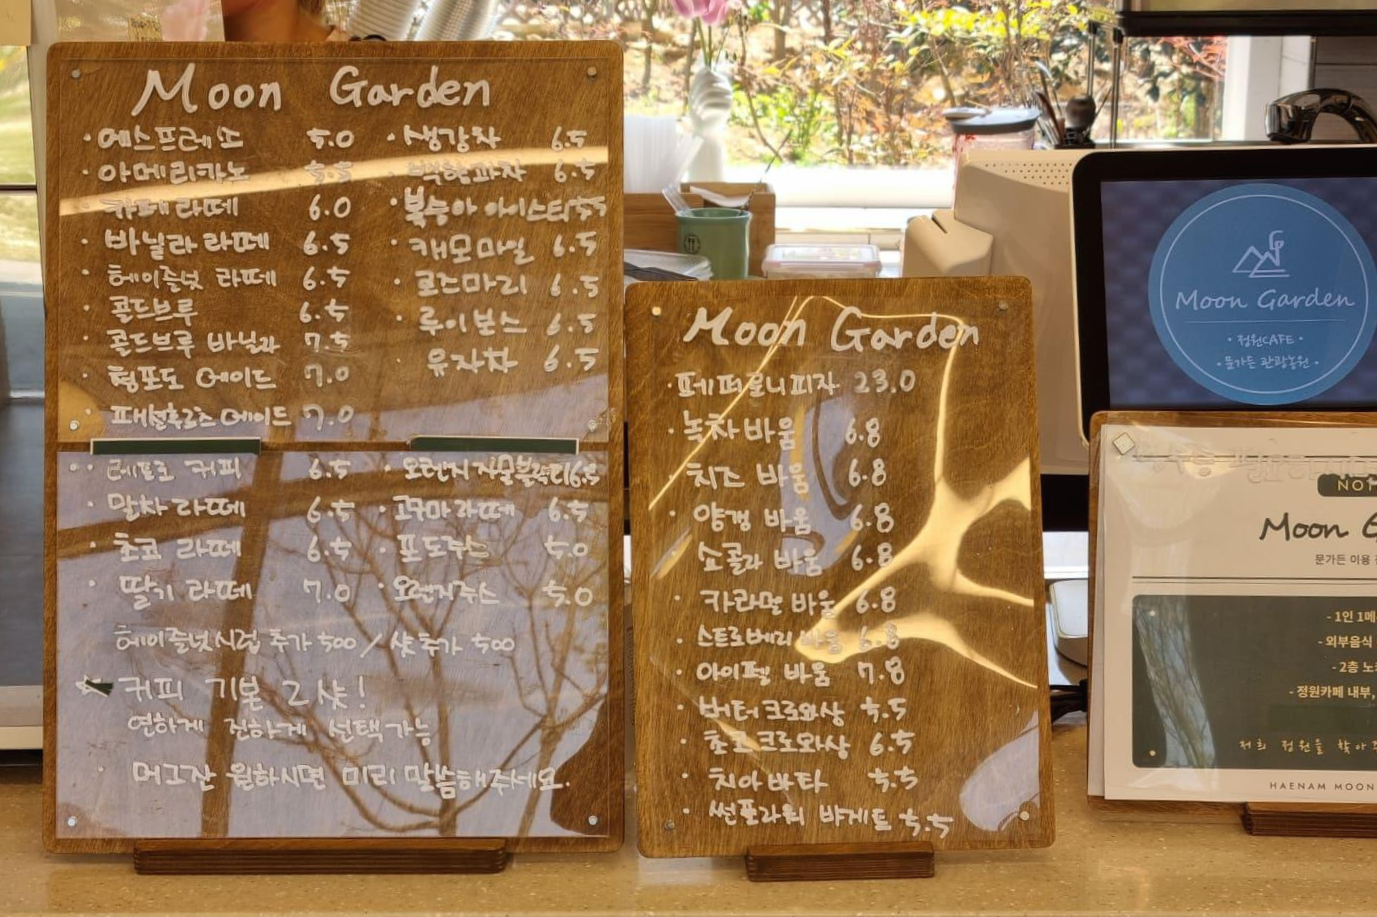 Moon Garden
· 에스프레소 5.0
· 아메리카노 5.5
· 카페 라떼 6.0
· 바닐라 라떼 6.5
· 헤이즐넛 라떼 6.5
· 콜드브루 6.5
· 콜드브루 바닐라 7.5
· 청포도 에이드 7.0
· 패션후르츠 에이드 7.0
· 생강차 6.5
6.5
· 복숭아 아이스티 5.5
· 캐모마일 6.5
· 로즈마리 6.5
· 루이보스 6.5
· 유자차 6.5
커피 6.5
· 말차 라떼 6.5
· 초코 라떼 6.5
· 딸기 라떼 7.0
· 오렌지 자몽블랙티 6.5
· 고구마 라떼 6.5
· 포도주스 5.0
· 오렌지주스 5.0
헤이즐넛시럽 추가 500 / 샷추가 500
커피 기본 2샷!
연하게 진하게 선택가능
머그잔 원하시면 미리 말씀해주세요.
Moon Garden
· 페퍼로니피자 23.0
· 녹차 바움 6.8
· 치즈 바움 6.8
· 양갱 바움 6.8
· 쇼콜라 바움 6.8
· 카라멜 바움 6.8
· 스트로베리 바움 6.8
· 아이펠 바움 7.8
· 버터 크로와상 5.5
· 초코 크로와상 6.5
· 치아바타 5.5
· 썬플라워 바게트 5.5
Moon Garden
· 정원CAFE ·
· 문가든 관광농원 ·
Moon G
문가든 이용
- 1인 1메
- 외부음식
- 2층 노
- 정원카페 내부,
저희 정원을 찾아
HAENAM MOON